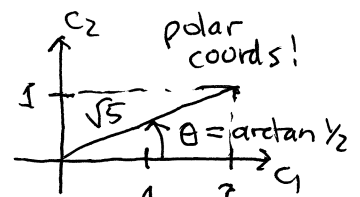 C₂
polar
coords!
1
√5
θ = arctan 1/2
C₁